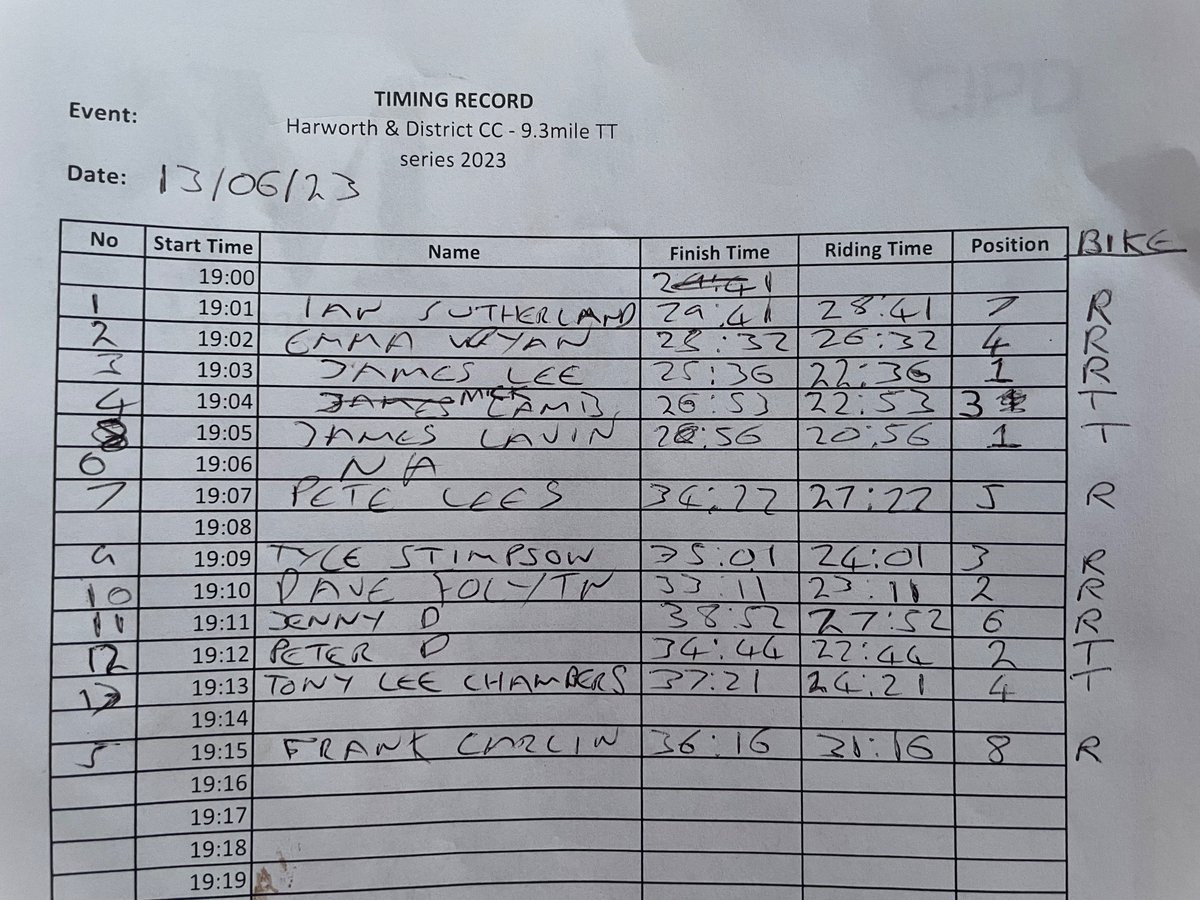 TIMING RECORD
Event: Harworth & District CC - 9.3mile TT
series 2023
Date: 13/06/23
No Start Time Name Finish Time Riding Time Position BIKE
19:00
1 19:01 IAN SUTHERLAND 29:41 28:41 7 R
2 19:02 EMMA 28:32 26:32 4 R
3 19:03 JAMES LEE 25:36 22:36 1 R
4 19:04 MICK LAMB 26:53 22:53 3 T
19:05 JAMES LAVIN :56 20:56 1 T
6 19:06 NA
7 19:07 PETE LEES 34:22 27:22 5 R
19:08
9 19:09 STIMPSON 01 24:01 3 R
10 19:10 DAVE 33:11 23:11 2 R
11 19:11 JENNY D 38:52 27:52 6 R
12 19:12 PETER D 34:44 22:44 2 T
13 19:13 TONY LEE CHAMBERS 37:21 24:21 4 T
19:14
5 19:15 FRANK CARLIN 36:16 31:16 8 R
19:16
19:17
19:18
19:19